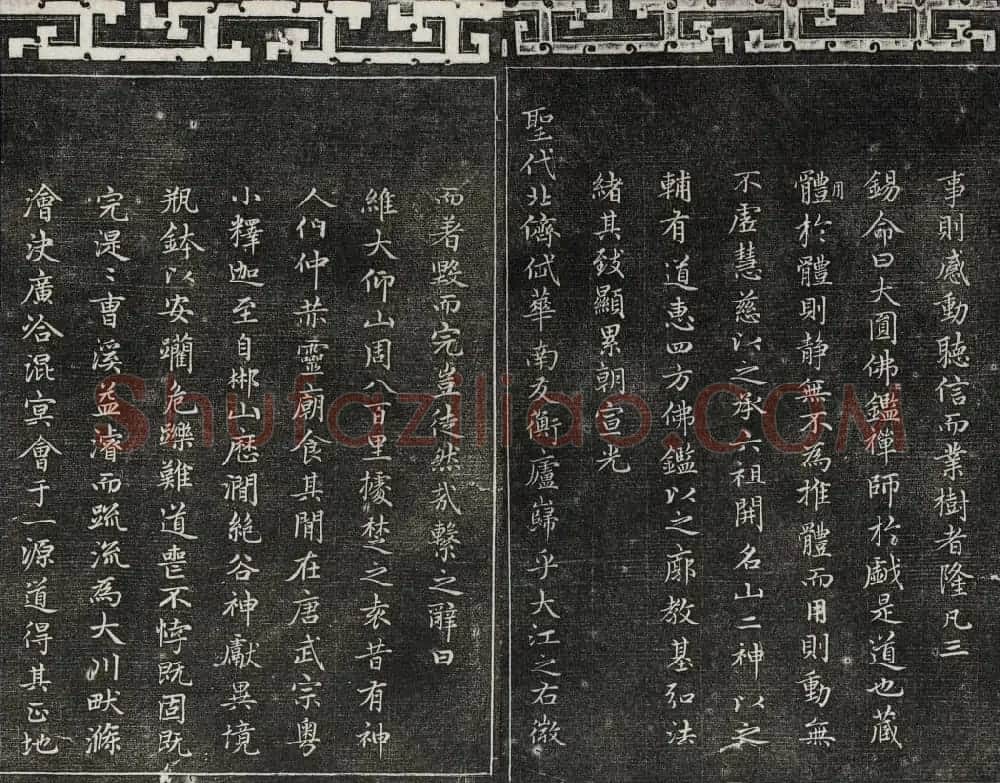 事則感動聽信而業樹者隆凡三
錫命曰大圓佛鑑禪師於戲是道也蔵
體用於體則静無不為推體而用則動無
不虛慧慈以之承六祖開名山二神以之
輔有道惠四方佛鑑以之廓教基弘法
緒其致顯累朝宣光
聖代北儕岱華南友衡廬巋乎大江之右徵
而著毀而完豈徒然哉繫之辭曰
維大仰山周八百里據楚之亥昔有神
人伯仲恭靈廟食其閒在唐武宗粵
小釋迦至自郴山歷澗絶谷神獻異境
瓶鉢以安躪危躒難道喪不悖既固既
完湜〻曹溪益濬而疏流為大川畎滌
澮決廣洽混冥會于一源道得其正地
Shufaziliao.COM